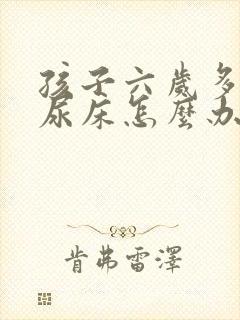 孩子六歲多
尿床怎麼办
肯弗雷澤